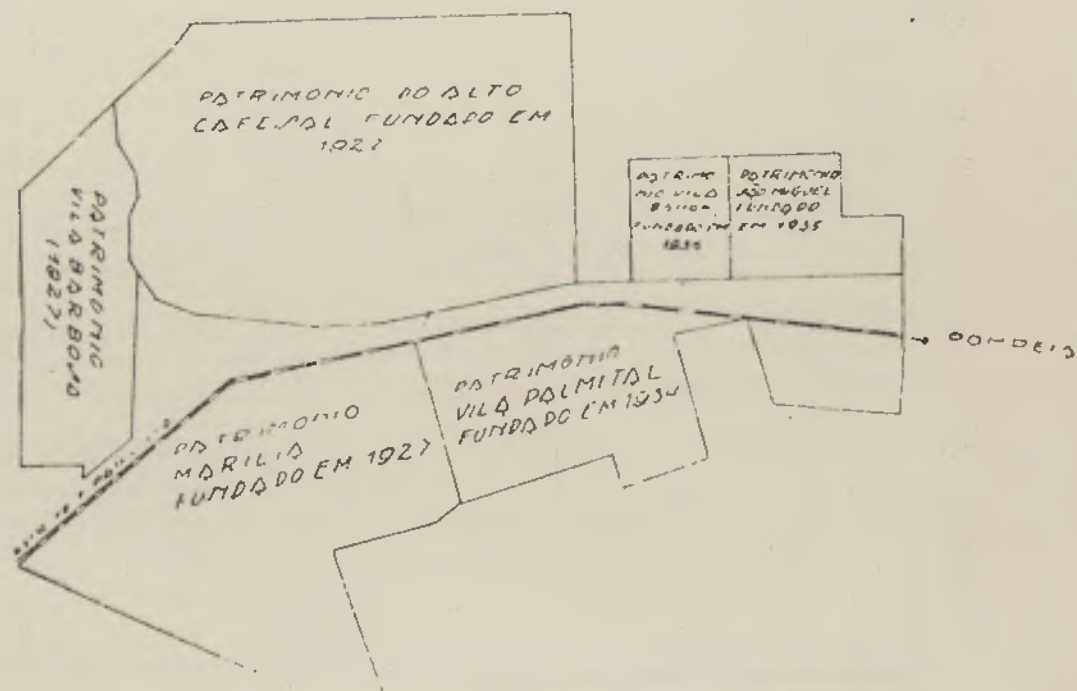 PATRIMONIO DO ALTO
CAFESAL FUNDADO EM
1927
PATRIMONIO
VILA BARBOSA
(1927)
PATRIMO
NIO VILA
FUNDADO EM
PATRIMONIO
SÃO MIGUEL
FUNDADO
EM 1935
POMPEIA
PATRIMONIO
MARILIA
FUNDADO EM 1927
PATRIMONIO
VILA PALMITAL
FUNDADO EM 1934